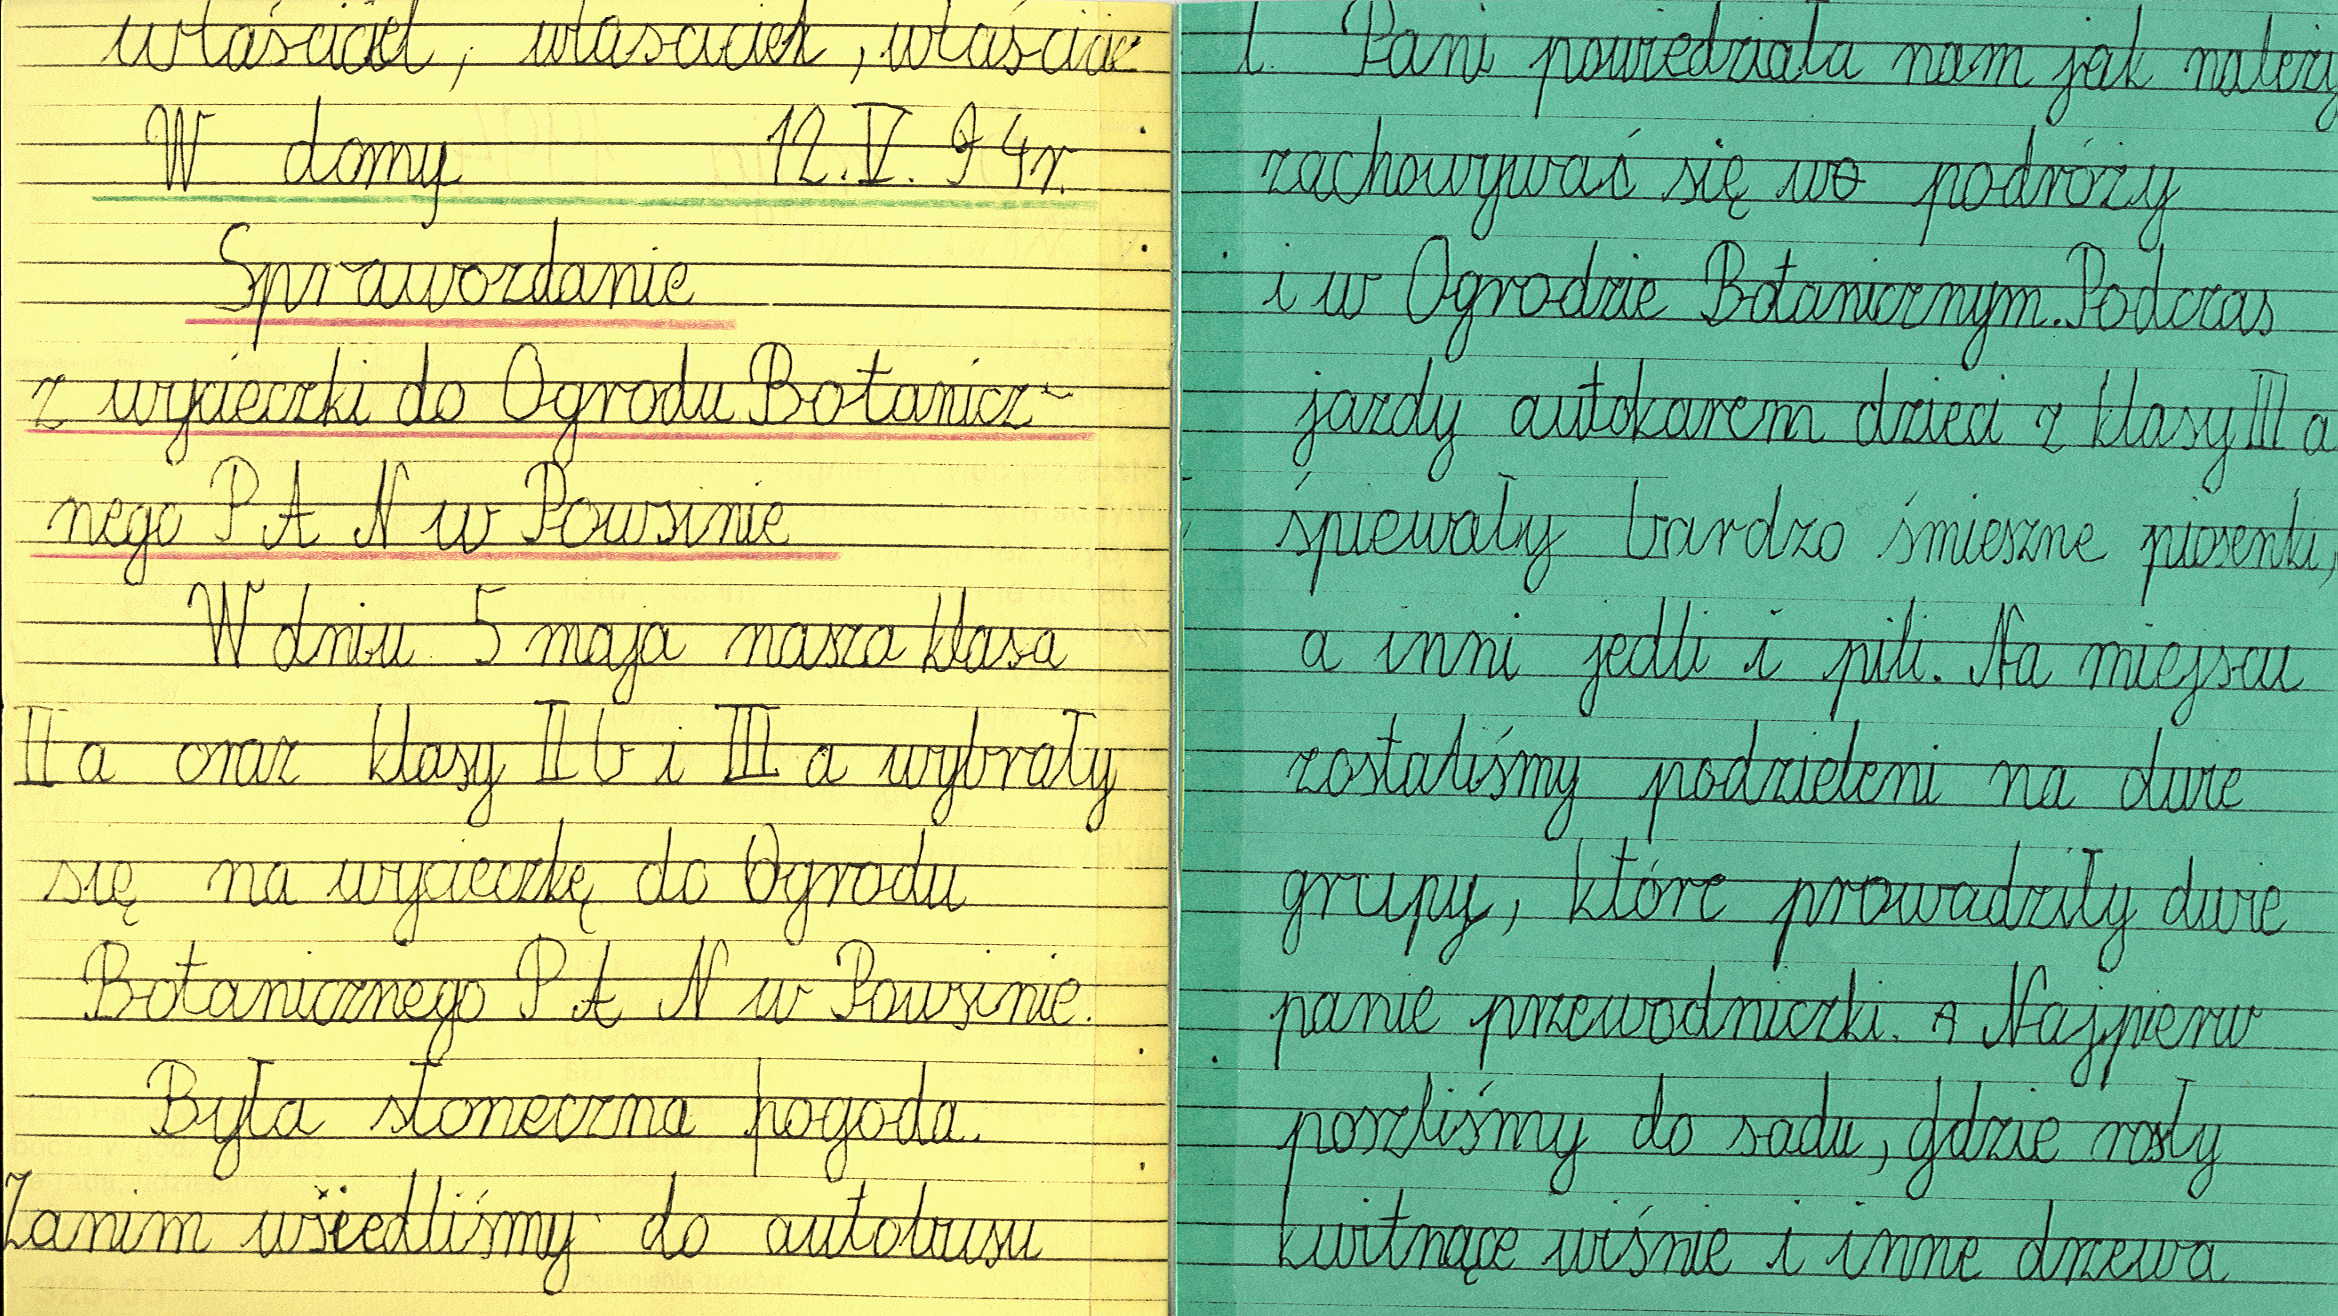 właściciel, właściciek, właścicie
W domy 12.V.94r.
Sprawozdanie
z wycieczki do Ogrodu Botanicz-
nego PAN w Powsinie
W dniu 5 maja nasza klasa
II a oraz klasy II b i III a wybrały
się na wycieczkę do Ogrodu
Botanicznego PAN w Powsinie.
Była słoneczna pogoda.
Zanim wsiedliśmy do autobusu
l. Pani powiedziała nam jak należy
zachowywać się w podróży
i w Ogrodzie Botanicznym. Podczas
jazdy autokarem dzieci z klasy III a
śpiewały bardzo śmieszne piosenki,
a inni jedli i pili. Na miejscu
zostaliśmy podzieleni na dwie
grupy, które prowadziły dwie
panie przewodniczki. A Najpierw
poszliśmy do sadu, gdzie rosły
kwitnące wiśnie i inne drzewa